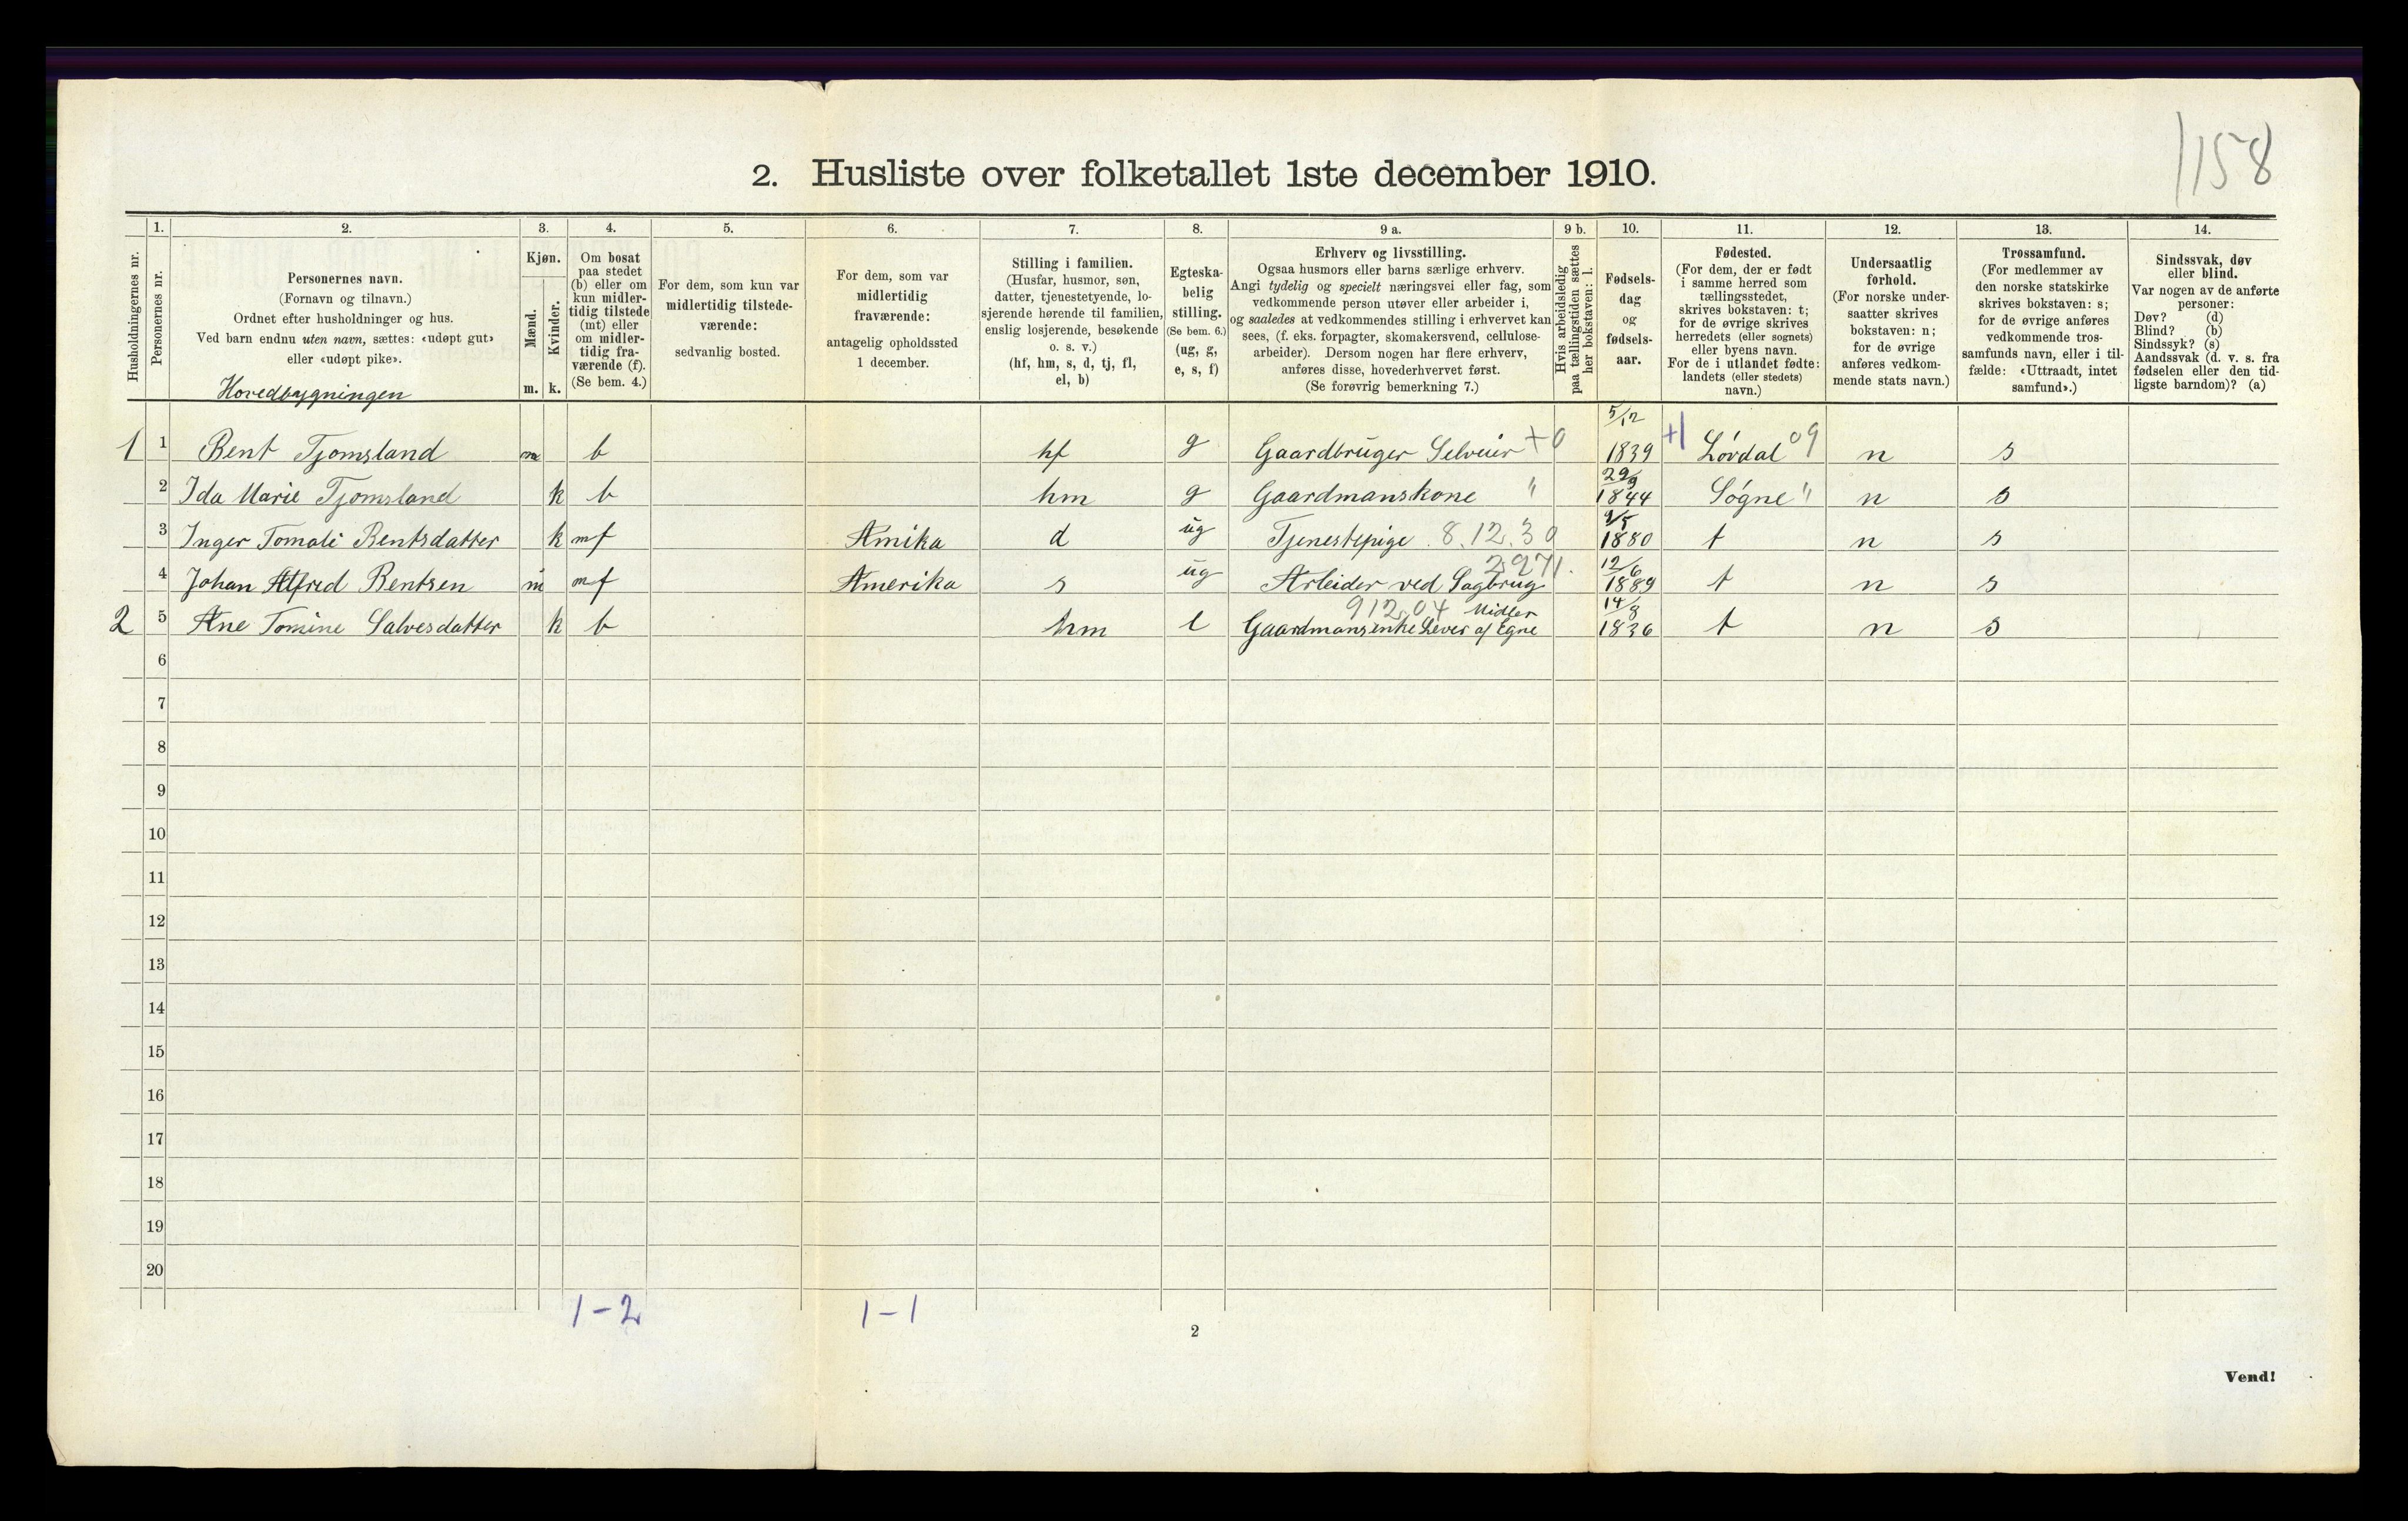 1158
2. Husliste over folketallet 1ste december 1910.
1. 2. 3. 4. 5. 6. 7. 8. 9 a. 9 b. 10. 11. 12. 13. 14.
Husholdningernes nr.
Personernes nr.
Personernes navn.
(Fornavn og tilnavn.)
Ordnet efter husholdninger og hus.
Ved barn endnu uten navn, sættes: «udøpt gut»
eller «udøpt pike».
Hovedbygningen
Kjøn.
Mænd.
Kvinder.
m. k.
Om bosat
paa stedet
(b) eller om
kun midler-
tidig tilstede
(mt) eller
om midler-
tidig fra-
værende (f).
(Se bem. 4.)
For dem, som kun var
midlertidig tilstede-
værende:
sedvanlig bosted.
For dem, som var
midlertidig
fraværende:
antagelig opholdssted
1 december.
Stilling i familien.
(Husfar, husmor, søn,
datter, tjenestetyende, lo-
sjerende hørende til familien,
enslig losjerende, besøkende
o. s. v.)
(hf, hm, s, d, tj, fl,
el, b)
Egteska-
belig
stilling.
(Se bem. 6.)
(ug, g,
e, s, f)
Erhverv og livsstilling.
Ogsaa husmors eller barns særlige erhverv.
Angi tydelig og specielt næringsvei eller fag, som
vedkommende person utøver eller arbeider i,
og saaledes at vedkommendes stilling i erhvervet kan
sees, (f. eks. forpagter, skomakersvend, cellulose-
arbeider). Dersom nogen har flere erhverv,
anføres disse, hovederhvervet først.
(Se forøvrig bemerkning 7.)
Hvis arbeidsledig
paa tællingstiden sættes
her bokstaven: l.
Fødsels-
dag
og
fødsels-
aar.
Fødested.
(For dem, der er født
i samme herred som
tællingsstedet,
skrives bokstaven: t;
for de øvrige skrives
herredets (eller sognets)
eller byens navn.
For de i utlandet fødte:
landets (eller stedets)
navn.)
Undersaatlig
forhold.
(For norske under-
saatter skrives
bokstaven: n;
for de øvrige
anføres vedkom-
mende stats navn.)
Trossamfund.
(For medlemmer av
den norske statskirke
skrives bokstaven: s;
for de øvrige anføres
vedkommende tros-
samfunds navn, eller i til-
fælde: «Uttraadt, intet
samfund».)
Sindssvak, døv
eller blind.
Var nogen av de anførte
personer:
Døv? (d)
Blind? (b)
Sindssyk? (s)
Aandssvak (d. v. s. fra
fødselen eller den tid-
ligste barndom)? (a)
1 1 Bent Tjomsland m b hf g Gaardbruger Selveier +0 5/12 1839 +1 Lóvdal 09 n s
2 Ida Marie Tjomsland k b hm g Gaardmanskone " 29/9 1844 Sógne " n s
3 Inger Tomali Bentsdatter k mf Amika d ug Tjenestepige 8.12.30 9/5 1880 t n s
4 Johan Alfred Bentsen m mf Amerika s ug 2971. Arbeider ved Sagbrug 12/6 1889 t n s
2 5 Ane Tomine Salvesdatter k b hm e 912.04 Gaardmansenke Lever af Egne Midler 14/8 1836 t n s
6
7
8
9
10
11
12
13
14
15
16
17
18
19
20
1-2 1-1
2
Vend!